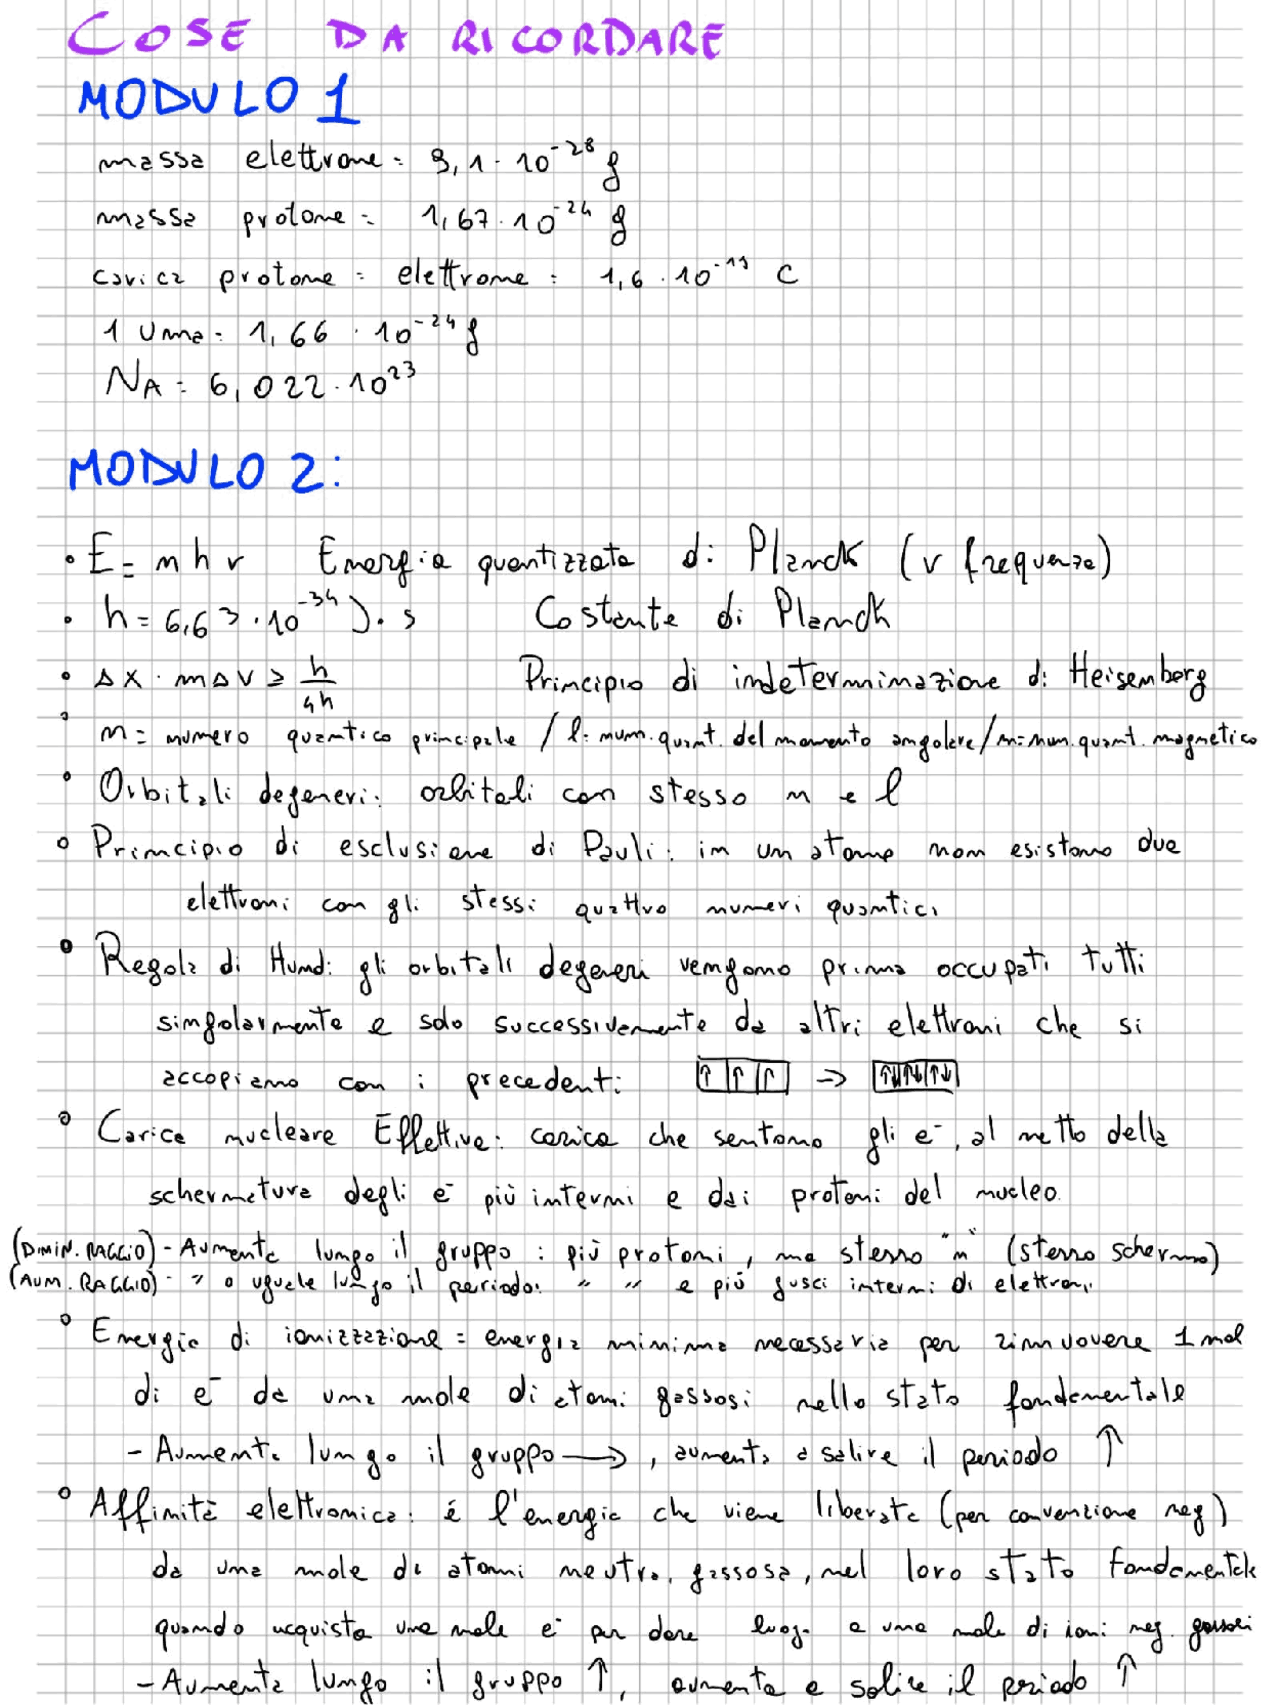 COSE DA RICORDARE
MODULO 1
massa elettrone = 9,1 · 10⁻²⁸ g
massa protone = 1,67 · 10⁻²⁴ g
carica protone = elettrone = 1,6 · 10⁻¹⁹ C
1 uma = 1,66 · 10⁻²⁴ g
NA = 6,022 · 10²³
MODULO 2:
• E = n h ν Energia quantizzata di Planck (ν frequenza)
• h = 6,63 · 10⁻³⁴ J · s Costante di Planck
• Δx · mΔv ≥ h/4π Principio di indeterminazione di Heisemberg
• n = numero quantico principale / l = num. quant. del momento angolare / m = num. quant. magnetico
• Orbitali degeneri: orbitali con stesso n e l
• Principio di esclusione di Pauli: in un atomo non esistono due
elettroni con gli stessi quattro numeri quantici
• Regola di Hund: gli orbitali degeneri vengono prima occupati tutti
singolarmente e solo successivamente da altri elettroni che si
accopiano con i precedenti ↑ ↑ ↑ → ↑↓ ↑↓ ↑↓
• Carica nucleare Effettiva: carica che sentono gli e⁻, al netto della
schermatura degli e⁻ più interni e dai protoni del nucleo.
(DIMIN. RAGGIO) - Aumenta lungo il gruppo: più protoni, ma stesso "n" (stesso schermo)
(AUM. RAGGIO) - " o uguale lungo il periodo: " " e più gusci interni di elettroni
• Energia di ionizzazione = energia minima necessaria per rimuovere 1 mol
di e⁻ da una mole di atomi gassosi nello stato fondamentale
- Aumenta lungo il gruppo →, aumenta a salire il periodo ↑
• Affinità elettronica: é l'energia che viene liberata (per convenzione neg)
da una mole di atomi neutra, gassosa, nel loro stato fondamentale
quando acquista una mole e⁻ per dare luogo a una mole di ioni neg. gassosi
- Aumenta lungo il gruppo ↑, aumenta a salire il periodo ↑